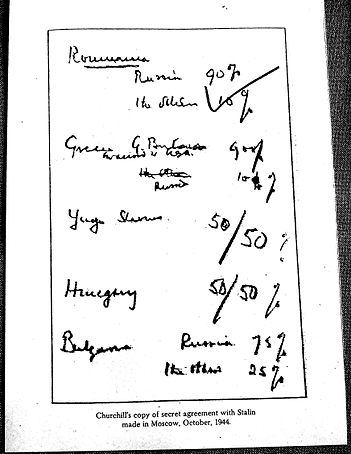 Roumania
Russia 90%
The others 10%
Greece G. Britain 90%
in accord w USA.
The Others
Russia 10%
Yugo Slavia 50/50 %
Hungary 50/50 %
Bulgaria Russia 75%
the others 25%
Churchill's copy of secret agreement with Stalin
made in Moscow, October, 1944.